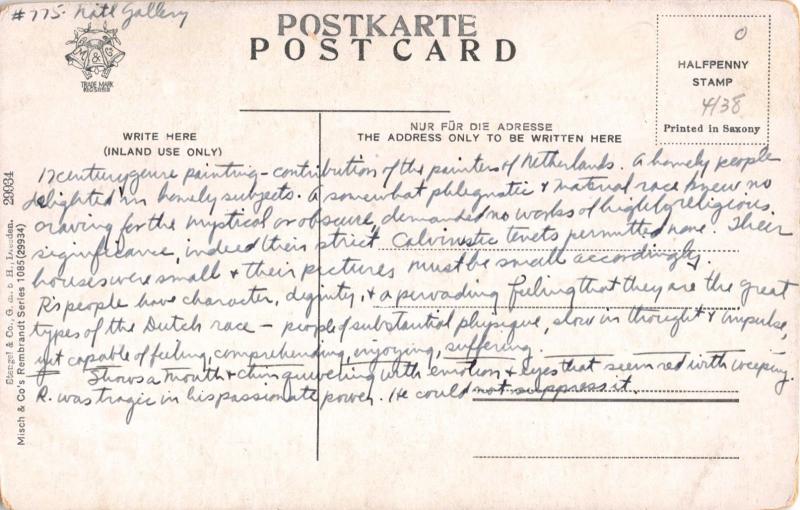 #775. Natl Gallery
POSTKARTE
POST CARD
M & G
TRADE MARK
0
HALFPENNY
STAMP
4/38
Printed in Saxony
WRITE HERE
(INLAND USE ONLY)
NUR FÜR DIE ADRESSE
THE ADDRESS ONLY TO BE WRITTEN HERE
17 century genre painting - contribution of the painters of Netherlands. A homely people
delighted in homely subjects. A somewhat phlegmatic & material race knew no
craving for the mystical or obscure, demanded no works of highly religious
significance, indeed their strict Calvinistic tenets permitted none. Their
houses were small & their pictures must be small accordingly.
R's people have character, dignity, & a pervading feeling that they are the great
types of the Dutch race - people of substantial physique, slow in thought & impulse,
yet capable of feeling, comprehending, enjoying, suffering.
Shows a mouth & chin quivering with emotion & eyes that seem red with weeping.
R. was tragic in his passionate power. He could not suppress it.
Stengel & Co., G. m. b. H., Dresden. 29934
Misch & Co's Rembrandt Series 1085 (29934)